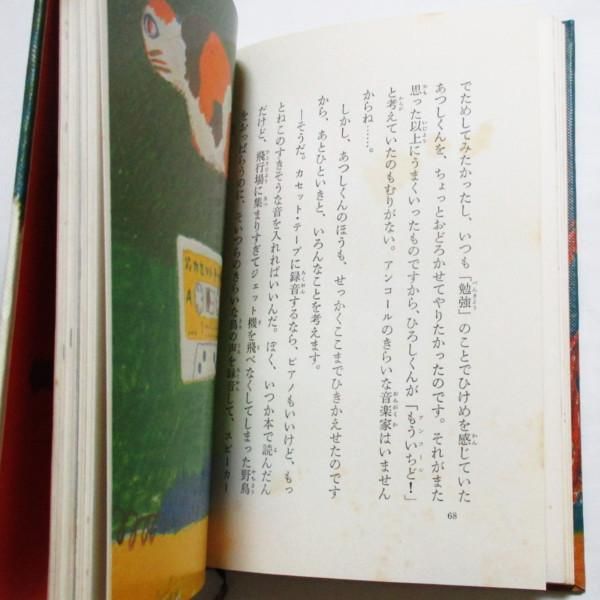 でためしてみたかったし、いつも「勉強」のことでひけめを感じていた
あつしくんを、ちょっとおどろかせてやりたかったのです。それがまた
思った以上にうまくいったものですから、ひろしくんが「もういちど！」
と考えていたのもむりがない。アンコールのきらいな音楽家はいません
からね……。
しかし、あつしくんのほうも、せっかくここまでひきかえせたのです
から、あとひといきと、いろんなことを考えます。
―そうだ。カセット・テープに録音するなら、ピアノもいいけど、もっ
とねこのすきそうな音を入れればいいんだ。ぼく、いつか本で読んだん
だけど、飛行場に集まりすぎてジェット機を飛べなくしてしまった野鳥
をおっぱらうのに、そいつらのきらいな鳥の声を録音して、スピーカー
68
カセット
A